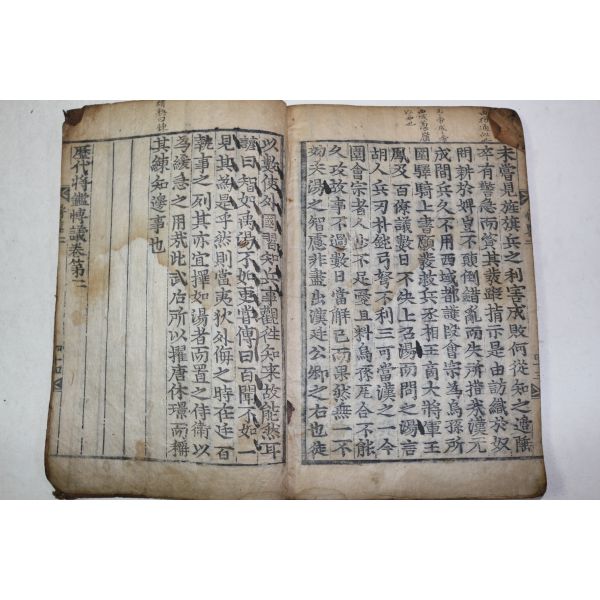 未嘗見旌旗兵之利害成敗何從知之
卒有警急而資其裁斷指示是由訪織於奴
問耕於婢豈不顛倒錯亂而失所措哉漢元
成間兵久不用西域都護段會宗為烏孫所
圍驛騎上書願發兵丞相王商大將軍王
鳳及百僚議數日不決上召湯而問之湯言
胡人兵刃朴鈍弓弩不利三可當漢之一今
圍會宗者人出不足憂且料烏孫瓦合不能
久攻故事不過數日當解已而果然無一不
如夫湯之智慮非盡出漢廷公卿之右也徒
以數使外國習知兵事觀往知來故能然耳
語曰智如禹湯不如更嘗傳曰百聞不如一
見其為是乎然則當夷狄外侮之時在廷百
執事之列其亦宜擇如湯者而置之侍衛以
為緩急之用哉此武后所以擢唐休璟而稱
其練知邊事也
歷代將鑑博議卷第二